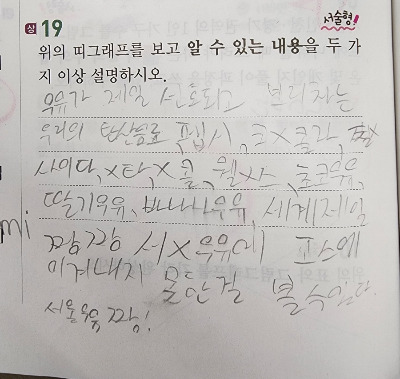 상 19 서술형!
위의 띠그래프를 보고 알 수 있는 내용을 두 가
지 이상 설명하시오.
우유가 제일 선호되고
우리의 탄산음료 펩시, 코X콜라,
사이다, X탁X 콜, 웰X스, 초코우유,
딸기우유, 바나나우유, 세계제일
mi
짱짱 서X우유에
이겨내지 못한걸 볼 수 있다.
서울우유 짱!